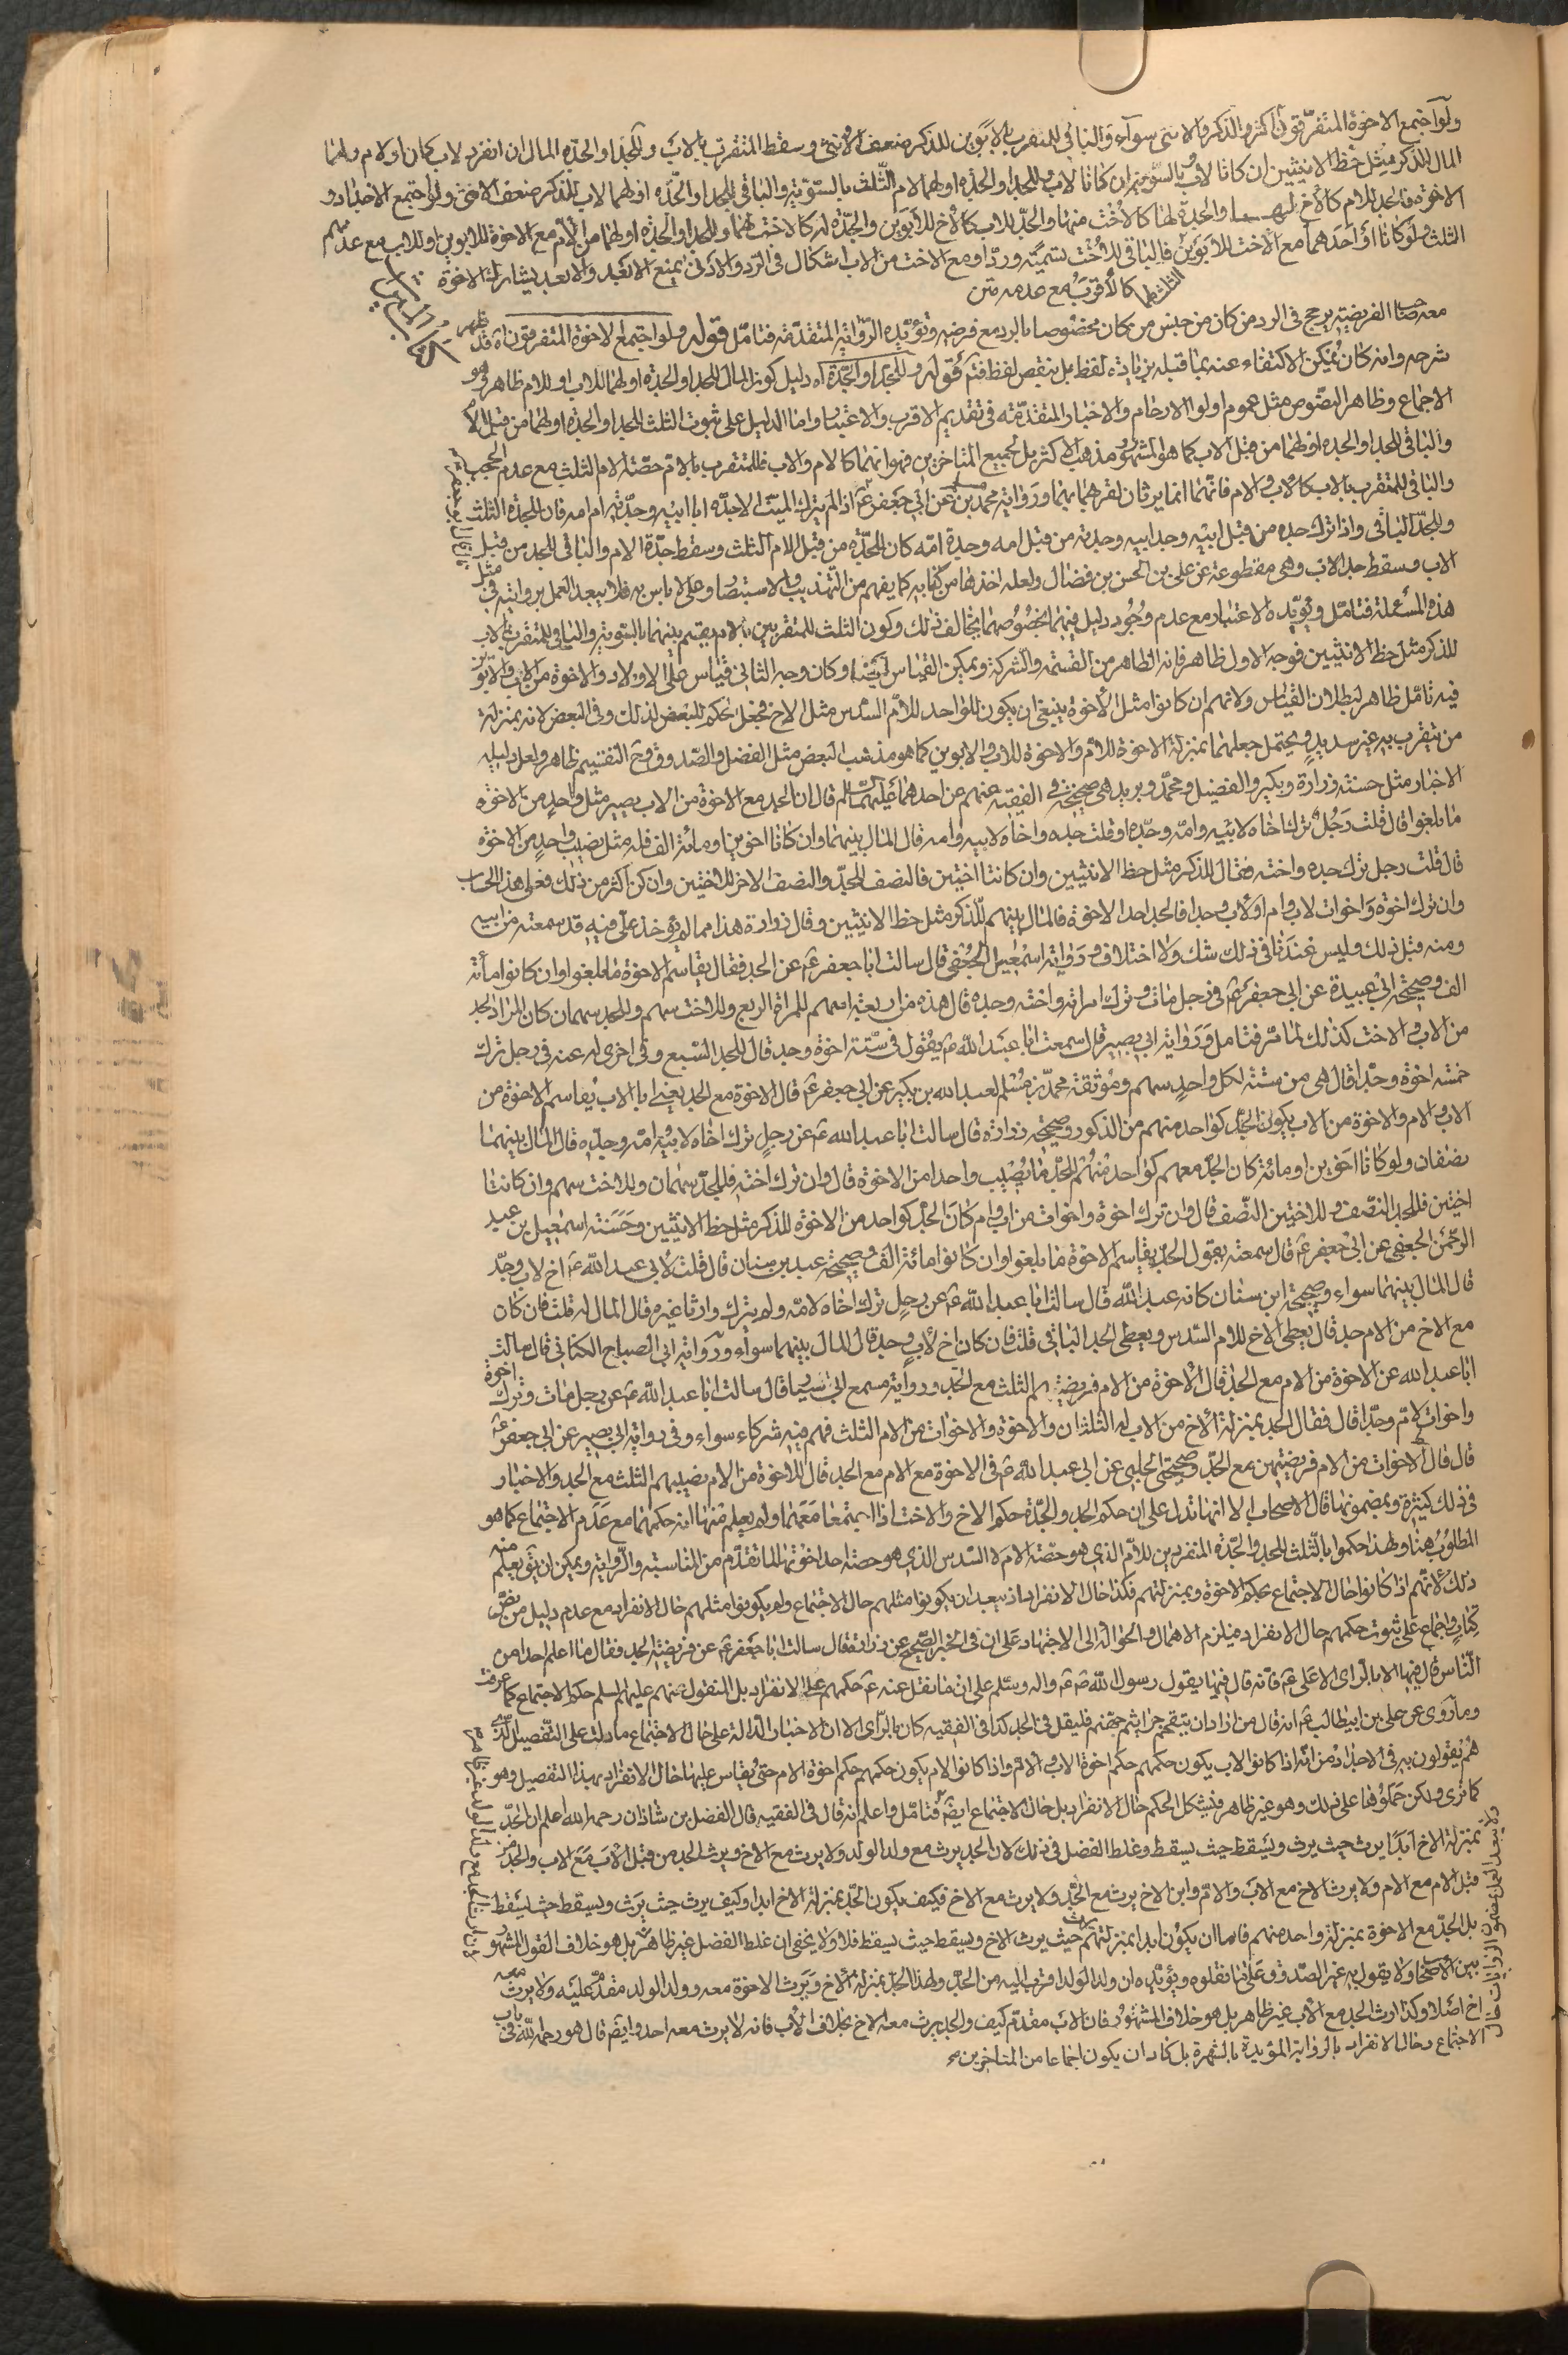 ولو اجتمع الاخوة المتفرقون الذكر والانثى سواء والباقي للمتقرب بالابوين للذكر ضعف الانثى وسقط المتقرب بالاب وللجد او الجدة المال ان انفرد لاب كان او لام ولهما
المال للذكر مثل حظ الانثيين ان كانا لاب وبالسوية ان كانا لام وللجد او الجدة او لهما لام الثلث بالسوية والباقي للجد او الجدة او لهما لاب للذكر ضعف الانثى ولو اجتمع الاجداد و
الاخوة فالجد للام كالاخ لها والجدة لها كالاخت منها والجد للاب كالاخ للابوين والجدة له كالاخت لهما وللجد او الجدة او لهما من الام مع الاخوة للابوين او للاب مع عدمهم
الثلث ولو كانا او احدهما مع الاخت للابوين فالباقي للاخت تسمية وردا ومع الاخت من الاب اشكال في الرد والادنى يمنع الابعد والابعد يشارك الاخوة
كالاقرب مع عدمه متن
معه صاحبا الفريضة يرجح في الرد من كان من جنس من كان مخصوصا بالرد مع فرضه وتؤيده الرواية المتقدمة فتامل قوله ولو اجتمع الاخوة المتفرقون اه قد ظهر
شرحه وانه كان يمكن الاكتفاء عنه بما قبله بزيادة لفظ بل بنقص لفظ فتم قوله وللجد او الجدة اه دليل كون المال للجد او الجدة او لهما للاب او للام ظاهر وهو
الاجماع وظاهر النصوص مثل عموم اولوا الارحام والاخبار المتقدمة في تقديم الاقرب والاعتبار واما الدليل على ثبوت الثلث للجد او الجدة او لهما من قبل الام
والباقي للجد او الجدة او لهما من قبل الاب كما هو المشهور ومذهب الاكثر بل جميع المتاخرين فهو انهما كالام والاب فللمتقرب بالام حصة الام الثلث مع عدم الحجب
والباقي للمتقرب بالاب كالاب والام فانهما انما يرثان لقربهما بهما ورواية محمد بن مسلم عن ابي جعفر ع اذا لم يترك الميت الا جده ابا ابيه وجدته ام امه فان للجدة الثلث
وللجد الباقي واذا ترك جده من قبل ابيه وجد ابيه وجدته من قبل امه وجدة امه كان للجدة من قبل الام الثلث وسقط جدة الام والباقي للجد من قبل
الاب وسقط جد الاب وهي مقطوعة عن علي بن الحسن بن فضال ولعله اخذها من كتابه كما يفهم من التهذيب والاستبصار وعلي لا باس به فلا يبعد العمل بروايته في مثل
هذه المسئلة فتامل وتؤيده الاعتبار مع عدم وجود دليل فيهما بخصوصهما يخالف ذلك وكون الثلث للمتقربين بالام يقسم بينهما بالسوية والباقي للمتقرب بالاب
للذكر مثل حظ الانثيين فوجه الاول ظاهر فانه الظاهر من القسمة والشركة ويمكن القياس ايضا وكان وجه الثاني قياس على الاولاد والاخوة من الاب والابوين
فيه تامل ظاهر لبطلان القياس ولانهم ان كانوا مثل الاخوة ينبغي ان يكون للواحد للام السدس مثل الاخ فجعل حكم للبعض لذلك وفي البعض لانه بمنزلة
من يتقرب به غير سديد ويحتمل جعلهما بمنزلة الاخوة للام والاخوة للاب والابوين كما هو مذهب البعض مثل الفضل والصدوق وقح التقسيم ظاهر ولعل دليله
الاخبار مثل حسنة زرارة وبكير والفضيل ومحمد وبريد هي صحيحة في الفقيه عنهم عن احدهما عليهما السلم قال ان الجد مع الاخوة من الاب يصير مثل واحد من الاخوة
ما بلغوا قال قلت رجل ترك اخاه لابيه وامه وجده او قلت جده واخاه لابيه وامه قال المال بينهما وان كانا اخوين او مائة الف فله مثل نصيب واحد من الاخوة
قال قلت رجل ترك جده واخته فقال للذكر مثل حظ الانثيين وان كانتا اختين فالنصف للجد والنصف الاخر للاختين وان كن اكثر من ذلك فعلى هذا الحساب
وان ترك اخوة واخوات لاب وام او لاب وجدا فالجد احد الاخوة فالمال بينهم للذكر مثل حظ الانثيين وقال زرارة هذا مما لم يؤخذ علي فيه قد سمعته من ابيه
ومنه قبل ذلك وليس عندنا في ذلك شك ولا اختلاف ورواية اسمعيل الجعفي قال سالت ابا جعفر ع عن الجد فقال يقاسم الاخوة ما بلغوا وان كانوا مأئة
الف وصحيحة ابي عبيدة عن ابي جعفر ع في رجل مات وترك امراته واخته وجده قال هذه من اربعة اسهم للمراة الربع وللاخت سهم وللجد سهمان كان المراد الجد
من الاب والاخت كذلك لما مر فتامل ورواية ابي بصير قال سمعت ابا عبد الله ع يقول في ستة اخوة وجد قال للجد السبع وفي اخرى له عنه في رجل ترك
خمسة اخوة وجدا قال هي من ستة لكل واحد سهم وموثقة محمد بن مسلم لعبد الله بن بكير عن ابي جعفر ع قال الاخوة مع الجد يعني ابا الاب يقاسم الاخوة من
الاب والام والاخوة من الاب يكون الجد كواحد منهم من الذكور وصحيحة زرارة قال سالت ابا عبد الله ع عن رجل ترك اخاه لابيه وامه وجده قال المال بينهما
نصفان ولو كانا اخوين او مائة كان الجد معهم كواحد منهم للجد ما يصيب واحدا من الاخوة قال وان ترك اخته فللجد سهمان وللاخت سهم وان كانتا
اختين فللجد النصف وللاختين النصف قال وان ترك اخوة واخوات من اب وام كان الجد كواحد من الاخوة للذكر مثل حظ الانثيين وحسنة اسمعيل بن عبد
الرحمن الجعفي عن ابي جعفر ع قال سمعته يقول الجد يقاسم الاخوة ما بلغوا وان كانوا مائة الف وصحيحة عبد بن سنان قال قلت لابي عبد الله ع اخ لاب وجد
قال المال بينهما سواء وصحيحة ابن سنان كانه عبد الله قال سالت ابا عبد الله ع عن رجل ترك اخاه لامه ولم يترك وارثا غيره قال المال له قلت فان كان
مع الاخ من الام جد قال يعطى الاخ للام السدس ويعطى الجد الباقي قلت فان كان اخ لاب وجد قال المال بينهما سواء ورواية ابي الصباح الكناني قال سالت
ابا عبد الله عن الاخوة من الام مع الجد قال الاخوة من الام فريضتهم الثلث مع الجد ورواية مسمع ابي سيار قال سالت ابا عبد الله ع عن رجل مات وترك اخوة
واخوات لام وجدا قال فقال الجد بمنزلة الاخ من الاب له الثلثان والاخوة والاخوات من الام الثلث فهم فيه شركاء سواء وفي رواية ابي بصير عن ابي جعفر ع
قال قال الاخوات من الام فريضتهن مع الجد وصحيحة الحلبي عن ابي عبد الله ع في الاخوة مع الام مع الجد قال للاخوة من الام نصيبهم الثلث مع الجد والاخبار
في ذلك كثيرة وبمضمونها قال الاصحاب الا انها تدل على ان حكم الجد والجدة حكم الاخ والاخت اذا اجتمعا معهما ولم يعلم منها انه حكمهما مع عدم الاجتماع كما هو
المطلوب هنا ولهذا حكموا بالثلث للجد والجدة المنفردين للام الذي هو حصة الام لا السدس الذي هو حصة احد اخوتها لما تقدم من المناسبة والرواية ويمكن ان يق يعلم منه
ذلك لانهم اذا كانوا حال الاجتماع بحكم الاخوة وبمنزلتهم فكذا حال الانفراد اذ يبعد ان يكونوا مثلهم حال الاجتماع ولم يكونوا مثلهم حال الانفراد مع عدم دليل من نص
كتاب واجماع على ثبوت حكمهم حال الانفراد فيلزم الاهمال والحوالة الى الاجتهاد على ان في الخبر الصحيح عن زرارة قال سالت ابا جعفر ع عن فريضة الجد فقال ما اعلم احدا من
الناس قال فيها الا بالراى الا علي ع فانه قال فيها بقول رسول الله ص ع واله وسلم على ان ما نقل عنه ع حكمهم على الانفراد بل المنقول عنهم عليهم السلم حكم الاجتماع كما عرفت
وما روي عن علي بن ابي طالب ع انه قال من اراد ان يتقحم جراثيم جهنم فليقل في الجد كذا في الفقيه كان بالراى الا ان الاخبار الدالة على حال الاجتماع ما دلت على التفصيل الذي
هم يقولون به في الاجداد من انه اذا كانوا لاب يكون حكمهم حكم اخوة الاب والام واذا كانوا لام يكون حكمهم حكم اخوة الام حتى يقاس عليها حال الانفراد بهذا التفصيل وهو
كما ترى ولكن حملوها على ذلك وهو غير ظاهر فيشكل الحكم حال الانفراد بل حال الاجتماع ايضا فتامل واعلم انه قال في الفقيه قال الفضل بن شاذان رحمه الله اعلم ان الجد
بمنزلة الاخ ابدا يرث حيث يرث ويسقط حيث يسقط وغلط الفضل في ذلك لان الجد يرث مع ولد الولد ولا يرث مع الاخ ويرث الجد من قبل الاب مع الاب والجد من
قبل الام مع الام ولا يرث الاخ مع الاب والام وابن الاخ يرث مع الجد ولا يرث مع الاخ فكيف يكون الجد بمنزلة الاخ ابدا وكيف يرث حيث يرث ويسقط حيث يسقط
بل الجد مع الاخوة بمنزلة واحد منهم فاما ان يكون ابدا بمنزلتهم يرث حيث يرث الاخ ويسقط حيث يسقط فلا ولا يخفى ان غلط الفضل غير ظاهر بل هو خلاف القول المشهور
بين الاصحاب ولا يقول به غير الصدوق وعلى ما نقلوه ويؤيده ان ولد الولد اقرب اليه من الجد ولهذا الجد بمنزلة الاخ ويرث الاخوة معه وولد الولد مقدم عليه ولا يرث معه
اخ اصلا وكذا ارث الجد مع الاب غير ظاهر بل هو خلاف المشهور فان الاب مقدم كيف والجد يرث معه الاخ بخلاف الاب فانه لا يرث معه احد وايضا قال هو رحمه الله في باب
الاجتماع وحال الانفراد بالرواية المؤيدة بالشهرة بل كاد ان يكون اجماعا من المتاخرين
ولا يبعد العمل بمضمون الروايات حال